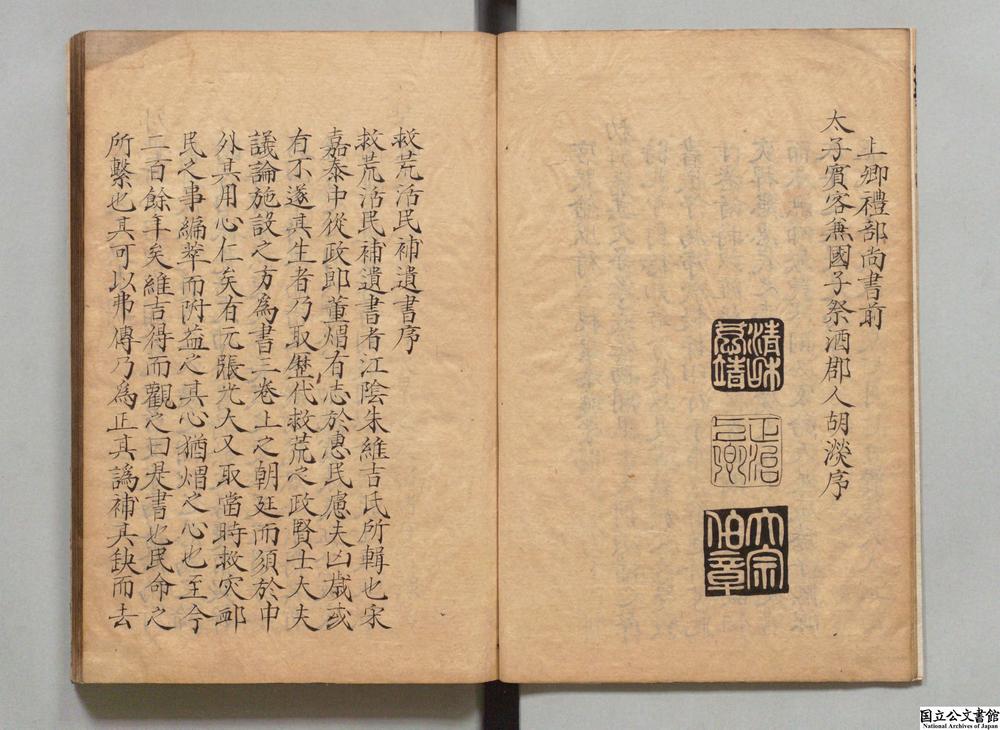 上卿禮部尚書前
太子賓客兼國子祭酒郡人胡濙序
清味
正治
上卿
大宗
伯章
救荒活民補遺書序
救荒活民補遺書者江陰朱維吉氏所輯也宋
嘉泰中從政郎董熠有志於惠民慮夫凶歲或
有不遂其生者乃取歷代救荒之政賢士大夫
議論施設之方為書三卷上之朝廷而須於中
外其用心仁矣有元張光大又取當時救灾邺
民之事編萃而附益之其心猶熠之心也至今
二百餘年矣維吉得而觀之曰是書也民命之
所繫也其可以弗傳乃為正其譌補其缺而去
国立公文書館
National Archives of Japan